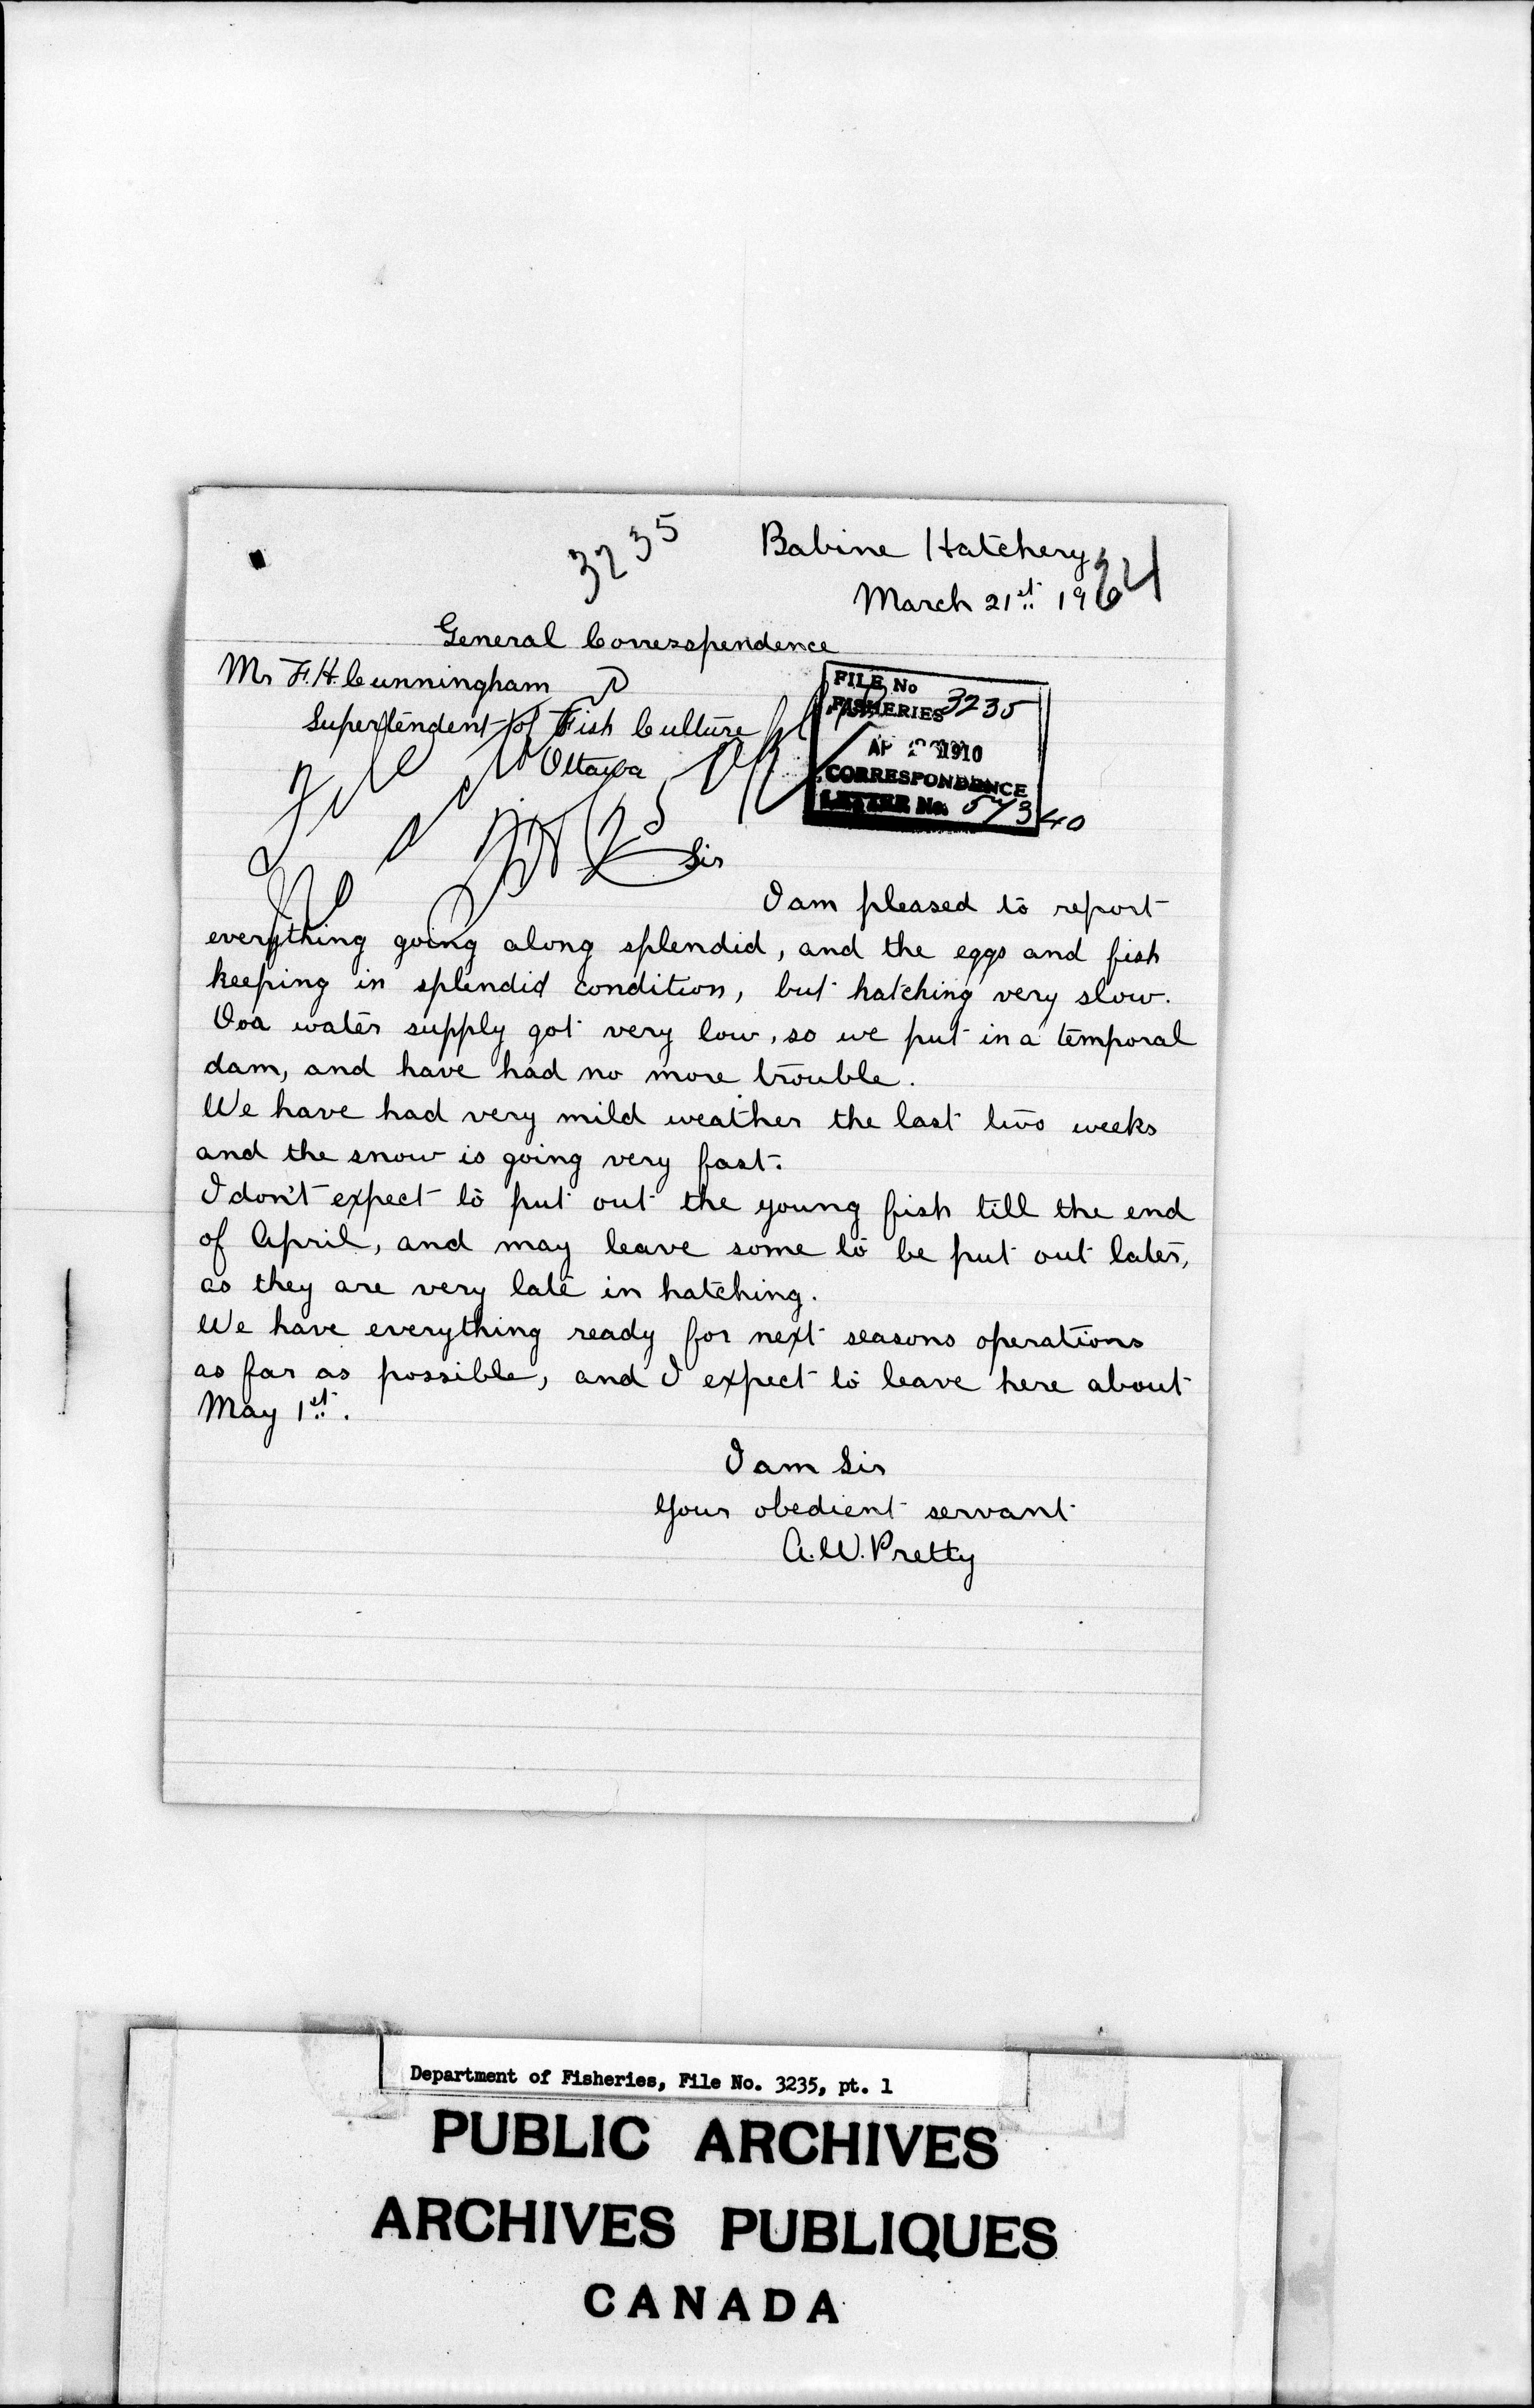 3235
Babine Hatchery
64
March 21st 19
General Correspondence
Mr F.H. Cunningham
Supertendent of Fish Culture
Ottawa
FILE No
FISHERIES 3235
AP 1910
CORRESPONDENCE
LETTER No. 57340
Sir
I am pleased to report
everything going along splendid, and the eggs and fish
keeping in splendid condition, but hatching very slow.
water supply got very low, so we put in a temporal
dam, and have had no more trouble.
We have had very mild weather the last two weeks
and the snow is going very fast.
I don't expect to put out the young fish till the end
of April, and may leave some to be put out later,
as they are very late in hatching.
We have everything ready for next seasons operations
as far as possible, and I expect to leave here about
May 1st.
I am Sir
Your obedient servant
A.W. Pretty
Department of Fisheries, File No. 3235, pt. 1
PUBLIC ARCHIVES
ARCHIVES PUBLIQUES
CANADA